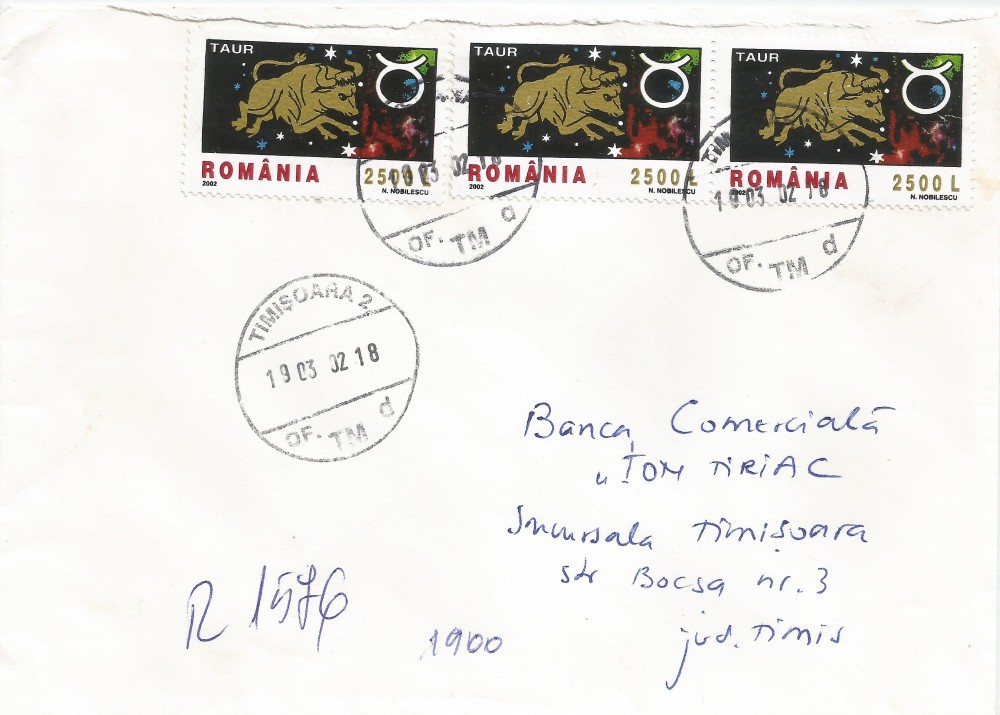 TAUR
ROMÂNIA 2500 L
2002 N. NOBILESCU
TAUR
ROMÂNIA 2500 L
2002 N. NOBILESCU
TAUR
ROMÂNIA 2500 L
2002 N. NOBILESCU
19 03 02 18
OF. TM d
19 03 02 18
OF. TM d
TIMIȘOARA 2
19 03 02 18
OF. TM d
Banca Comercială
"ION ȚIRIAC
Sucursala Timișoara
str Bocșa nr. 3
jud. Timis
R 1576
1900